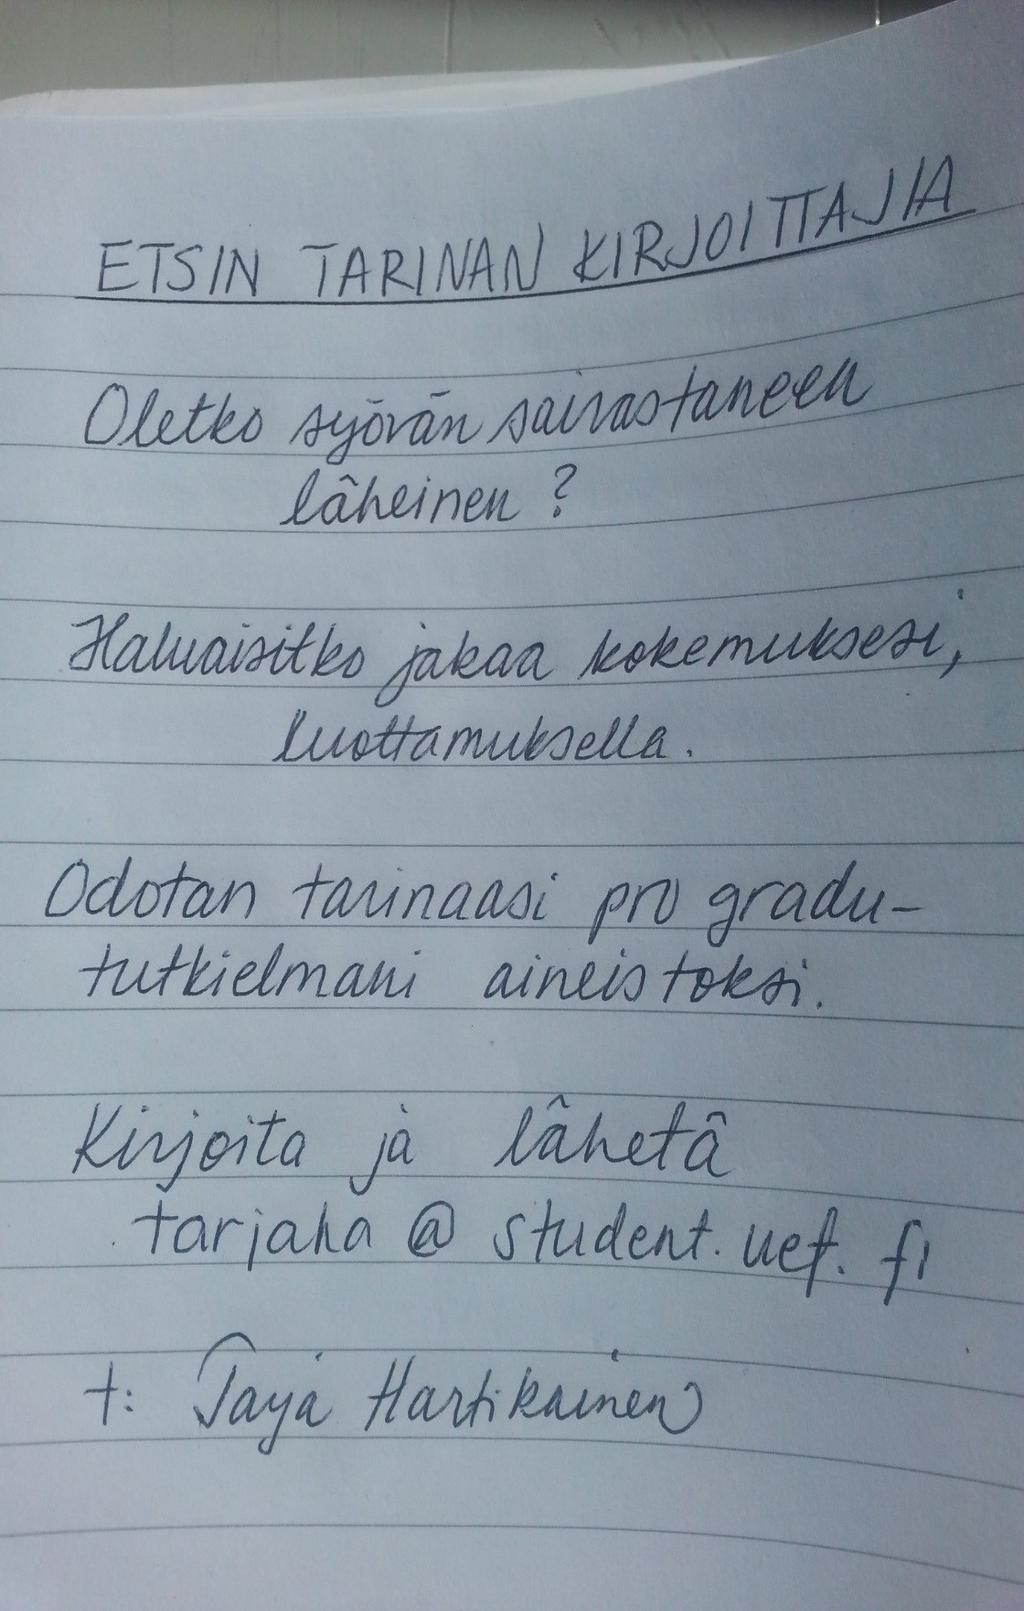 ETSIN TARINAN KIRJOITTAJIA
Oletko syövän sairastaneen
läheinen ?
Haluaisitko jakaa kokemuksesi,
luottamuksella.
Odotan tarinaasi pro gradu-
tutkielmani aineistoksi.
Kirjoita ja lähetä
tarjaha @ student. uef. fi
t: Tarja Hartikainen